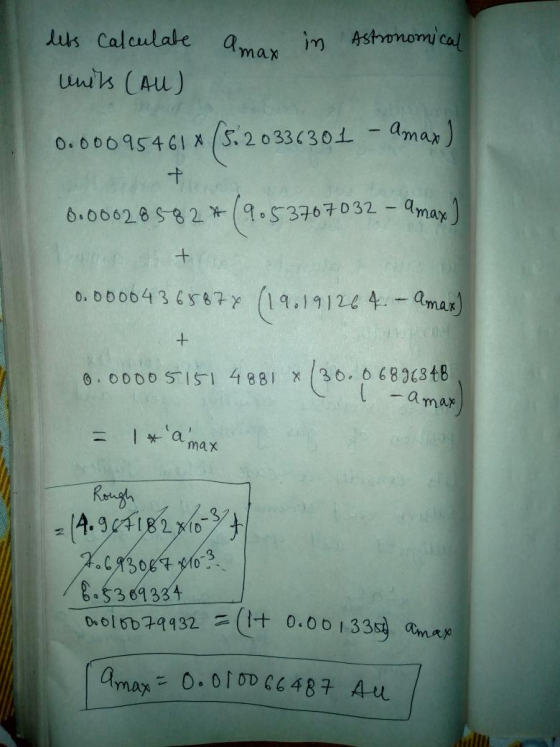 lets Calculate amax in Astronomical
Units (AU)
0.00095461 * (5.20336301 - amax)
+
0.00028582 * (9.53707032 - amax)
+
0.0000436587 x (19.191264 - amax)
+
0.00005151 4881 x (30.06896348
- amax)
= 1 * 'a'max
Rough
= (4.967182 x 10-3) +
7.693067 x 10-3
0.010079932 = (1 + 0.001335) amax
amax = 0.010066487 AU